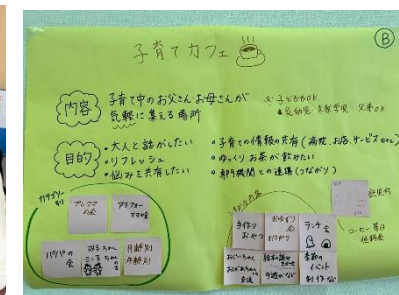 子育てカフェ
B
内容
子育て中のお父さんお母さんが
気軽に集える場所
☆子どももOK
目的
・大人と話がしたい
・リフレッシュ
・悩みを共有したい
・子育ての情報の共有(病院、お店、サービスetc)
・ゆっくりお茶が飲みたい
・専門機関との連携(つながり)
カテゴリー
プレママ
の会
アラフォー
ママの会
パパや
の会
双子ちゃん
三つ子ちゃん
の会
月齢別
年齢別
手作り
おやつ
おゆずり
会
ランチ会
絵本の読み
きかせ
手遊びなど
季節の
イベント
制作など
コーヒー等は